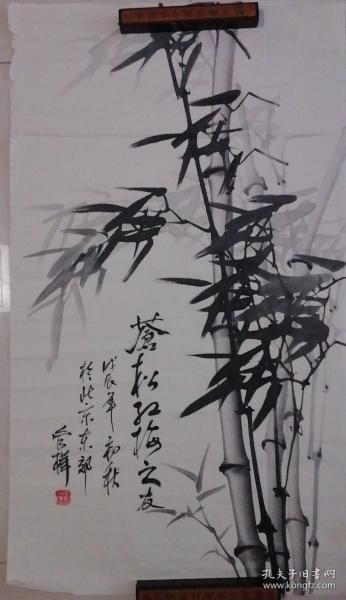 蒼松紅梅之友
戊辰年初秋
於北京东郊
孔夫子旧书网
www.kongfz.com